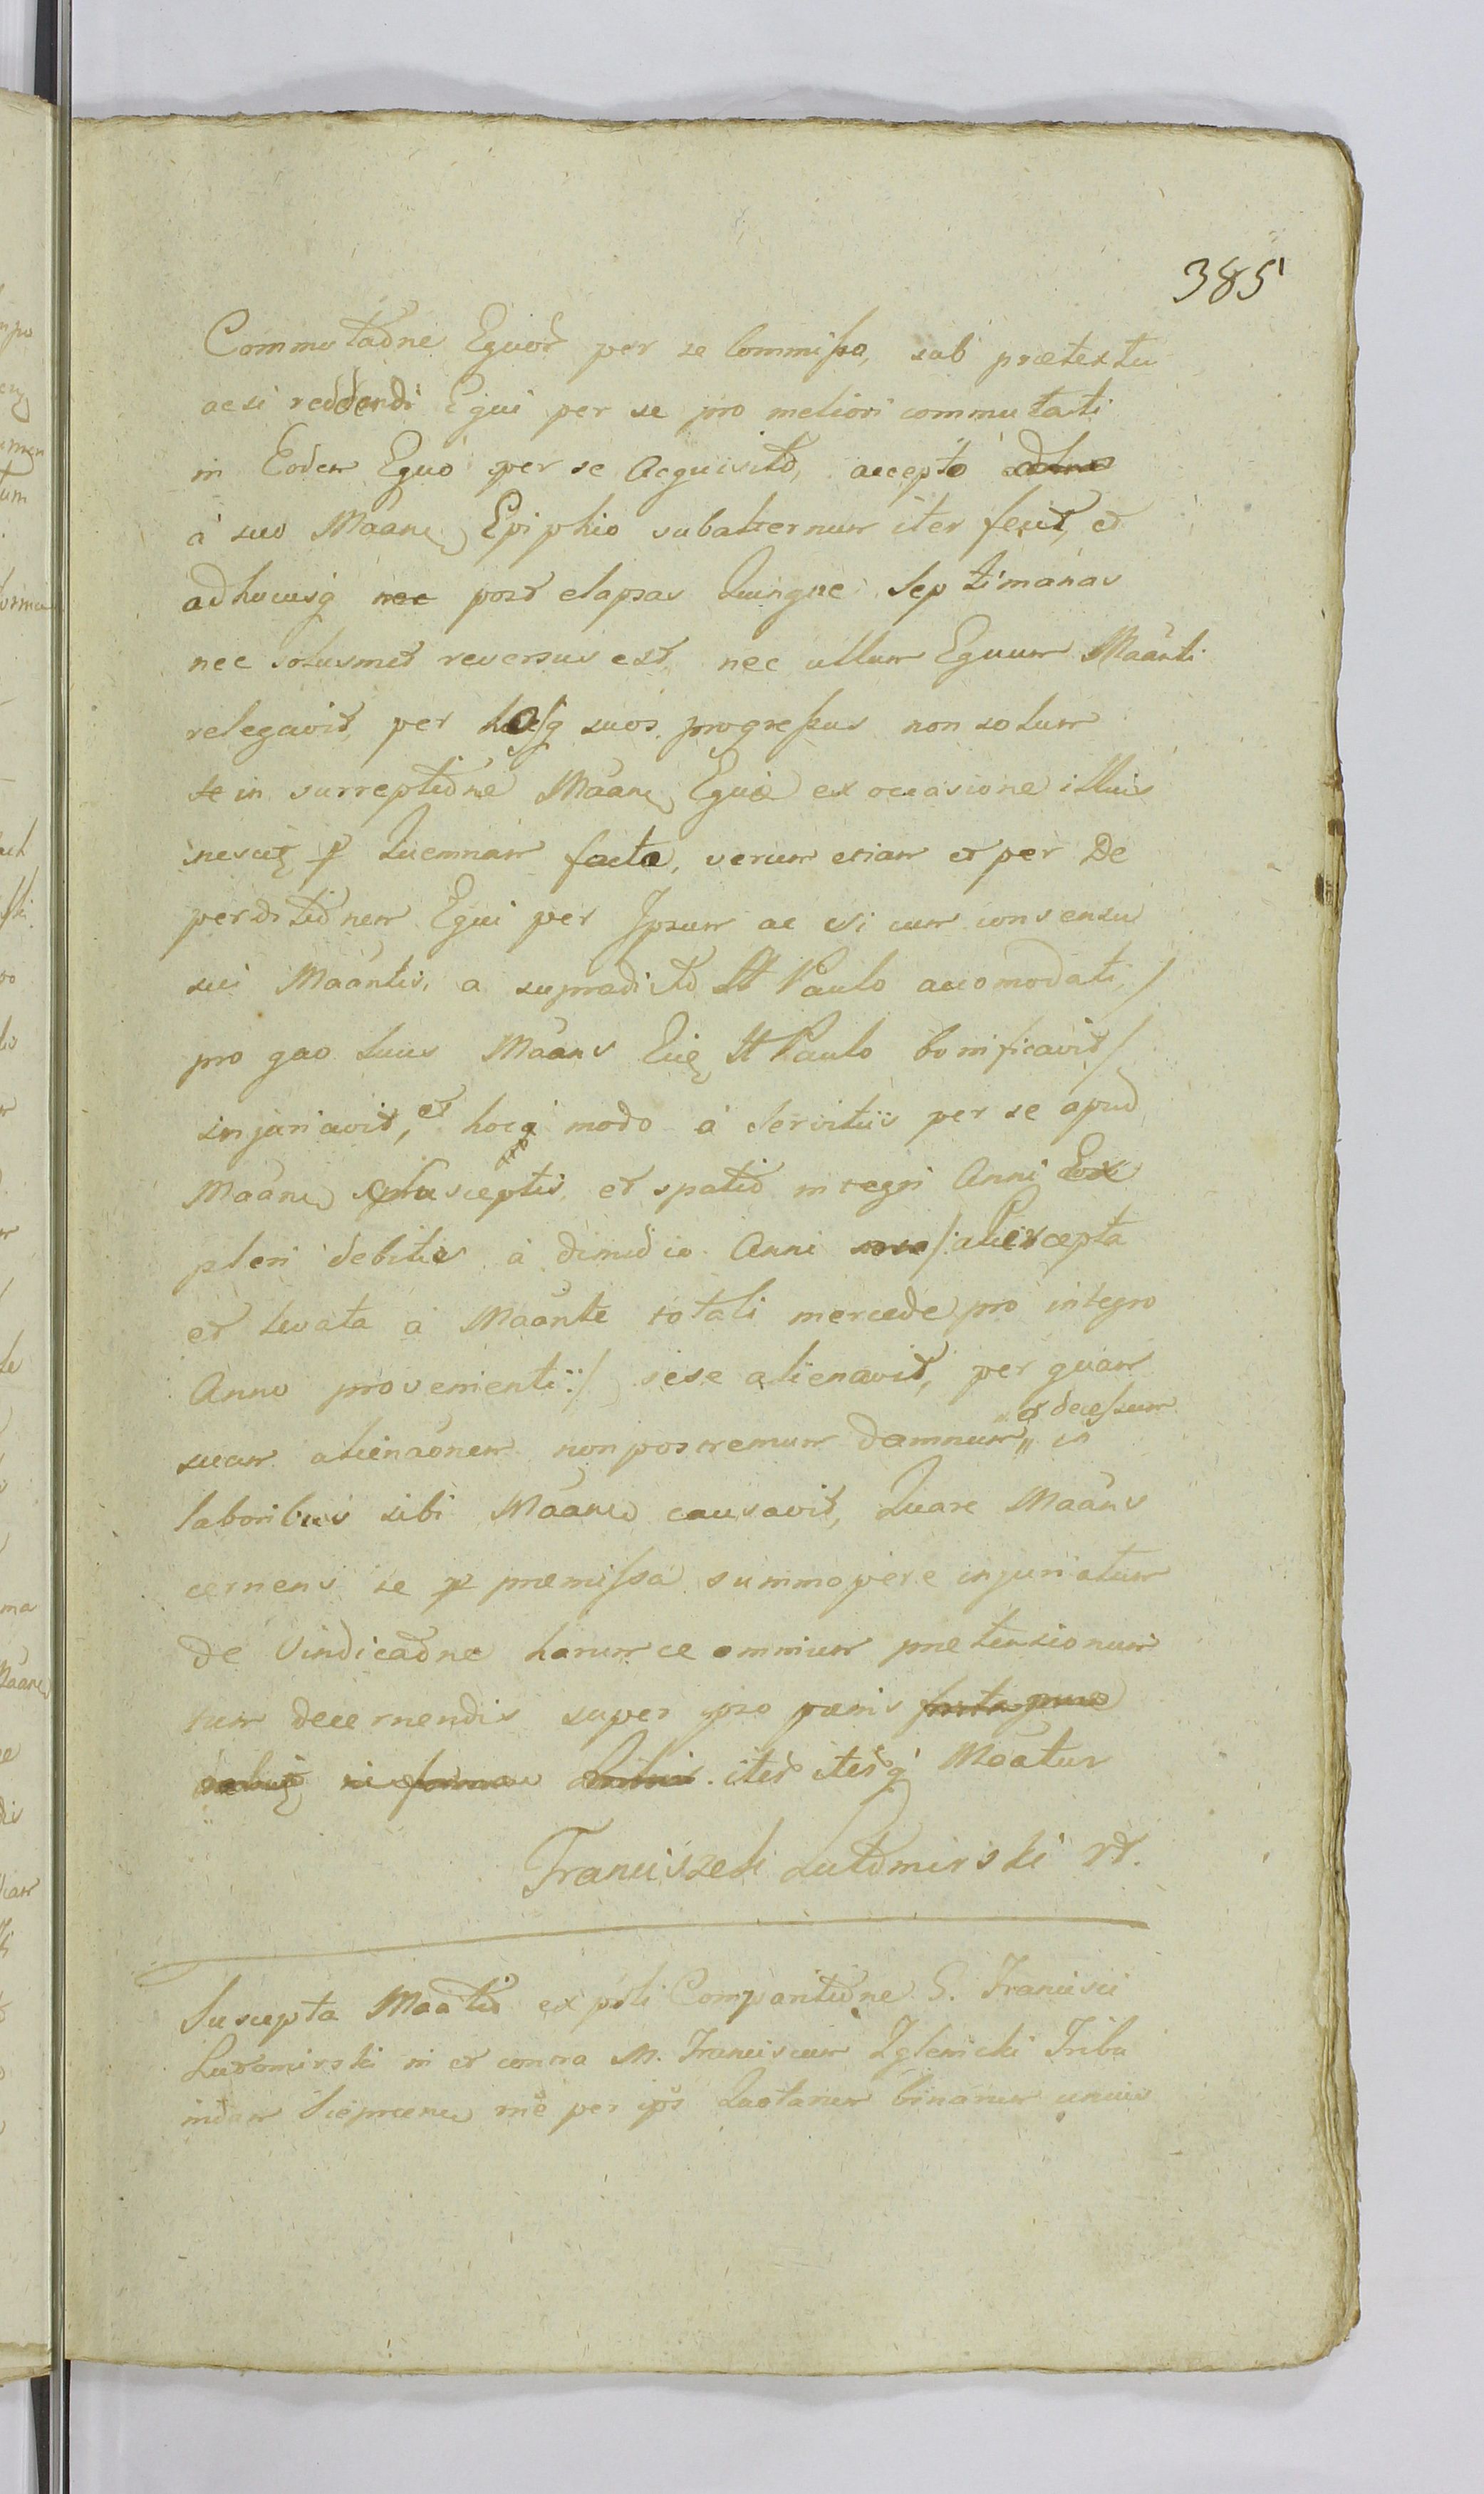 385
Commutaõne Equor̃ per se Commissa, sub prætextu
acsi reddendi Equi per se pro meliori commutati
in Eodem Equo per se Acquisito, accepto
à suo Maãne Epiphio subalternum iter fecit, et
adhucusq nec post elapsas Quinque Septimanas
nec solusmet reversus est, nec ullum Equum Maãnti
relegavit, per hosq suos progressus non solum
se in surreptione Maãne Equi ex occasione illius
nescitę p Quemnam facta, verum etiam et per De
perditionem Equi per Ipsum ac si cum consensu
sui Maãntis, a supradicto Paulo accomodati,/
pro quo Suus Maãns Paulo bonificavit/
injuriavit, et hocq modo à Servitiis per se apud
Maãne susceptis, et spatio integri Anni Ex
pleri debitis à dimidio Anni /:alias excepta
et levata à Maãnte totali mercede pro integro
Anno provenienti:/ sese alienavit, per quam
suam alienaõnem non postremum damnum,, et decessum in
laboribus sibi Maãne causavit, Quare Maãns
cernens se p præmissa summopere injuriatum
de Vindicaõne harumce omnium prætensionum
tum decernendis super ipso pænis
iter̃ iter̃q Maãtur
Franciszek Lutomirski
Suscepta Maãtio ex psti Comparitione G. Francisci
Lutomirski in et contra M. Franciscum Zglenicki Tribu
nidam Sieprcens me per ips Quotarum binarum unius